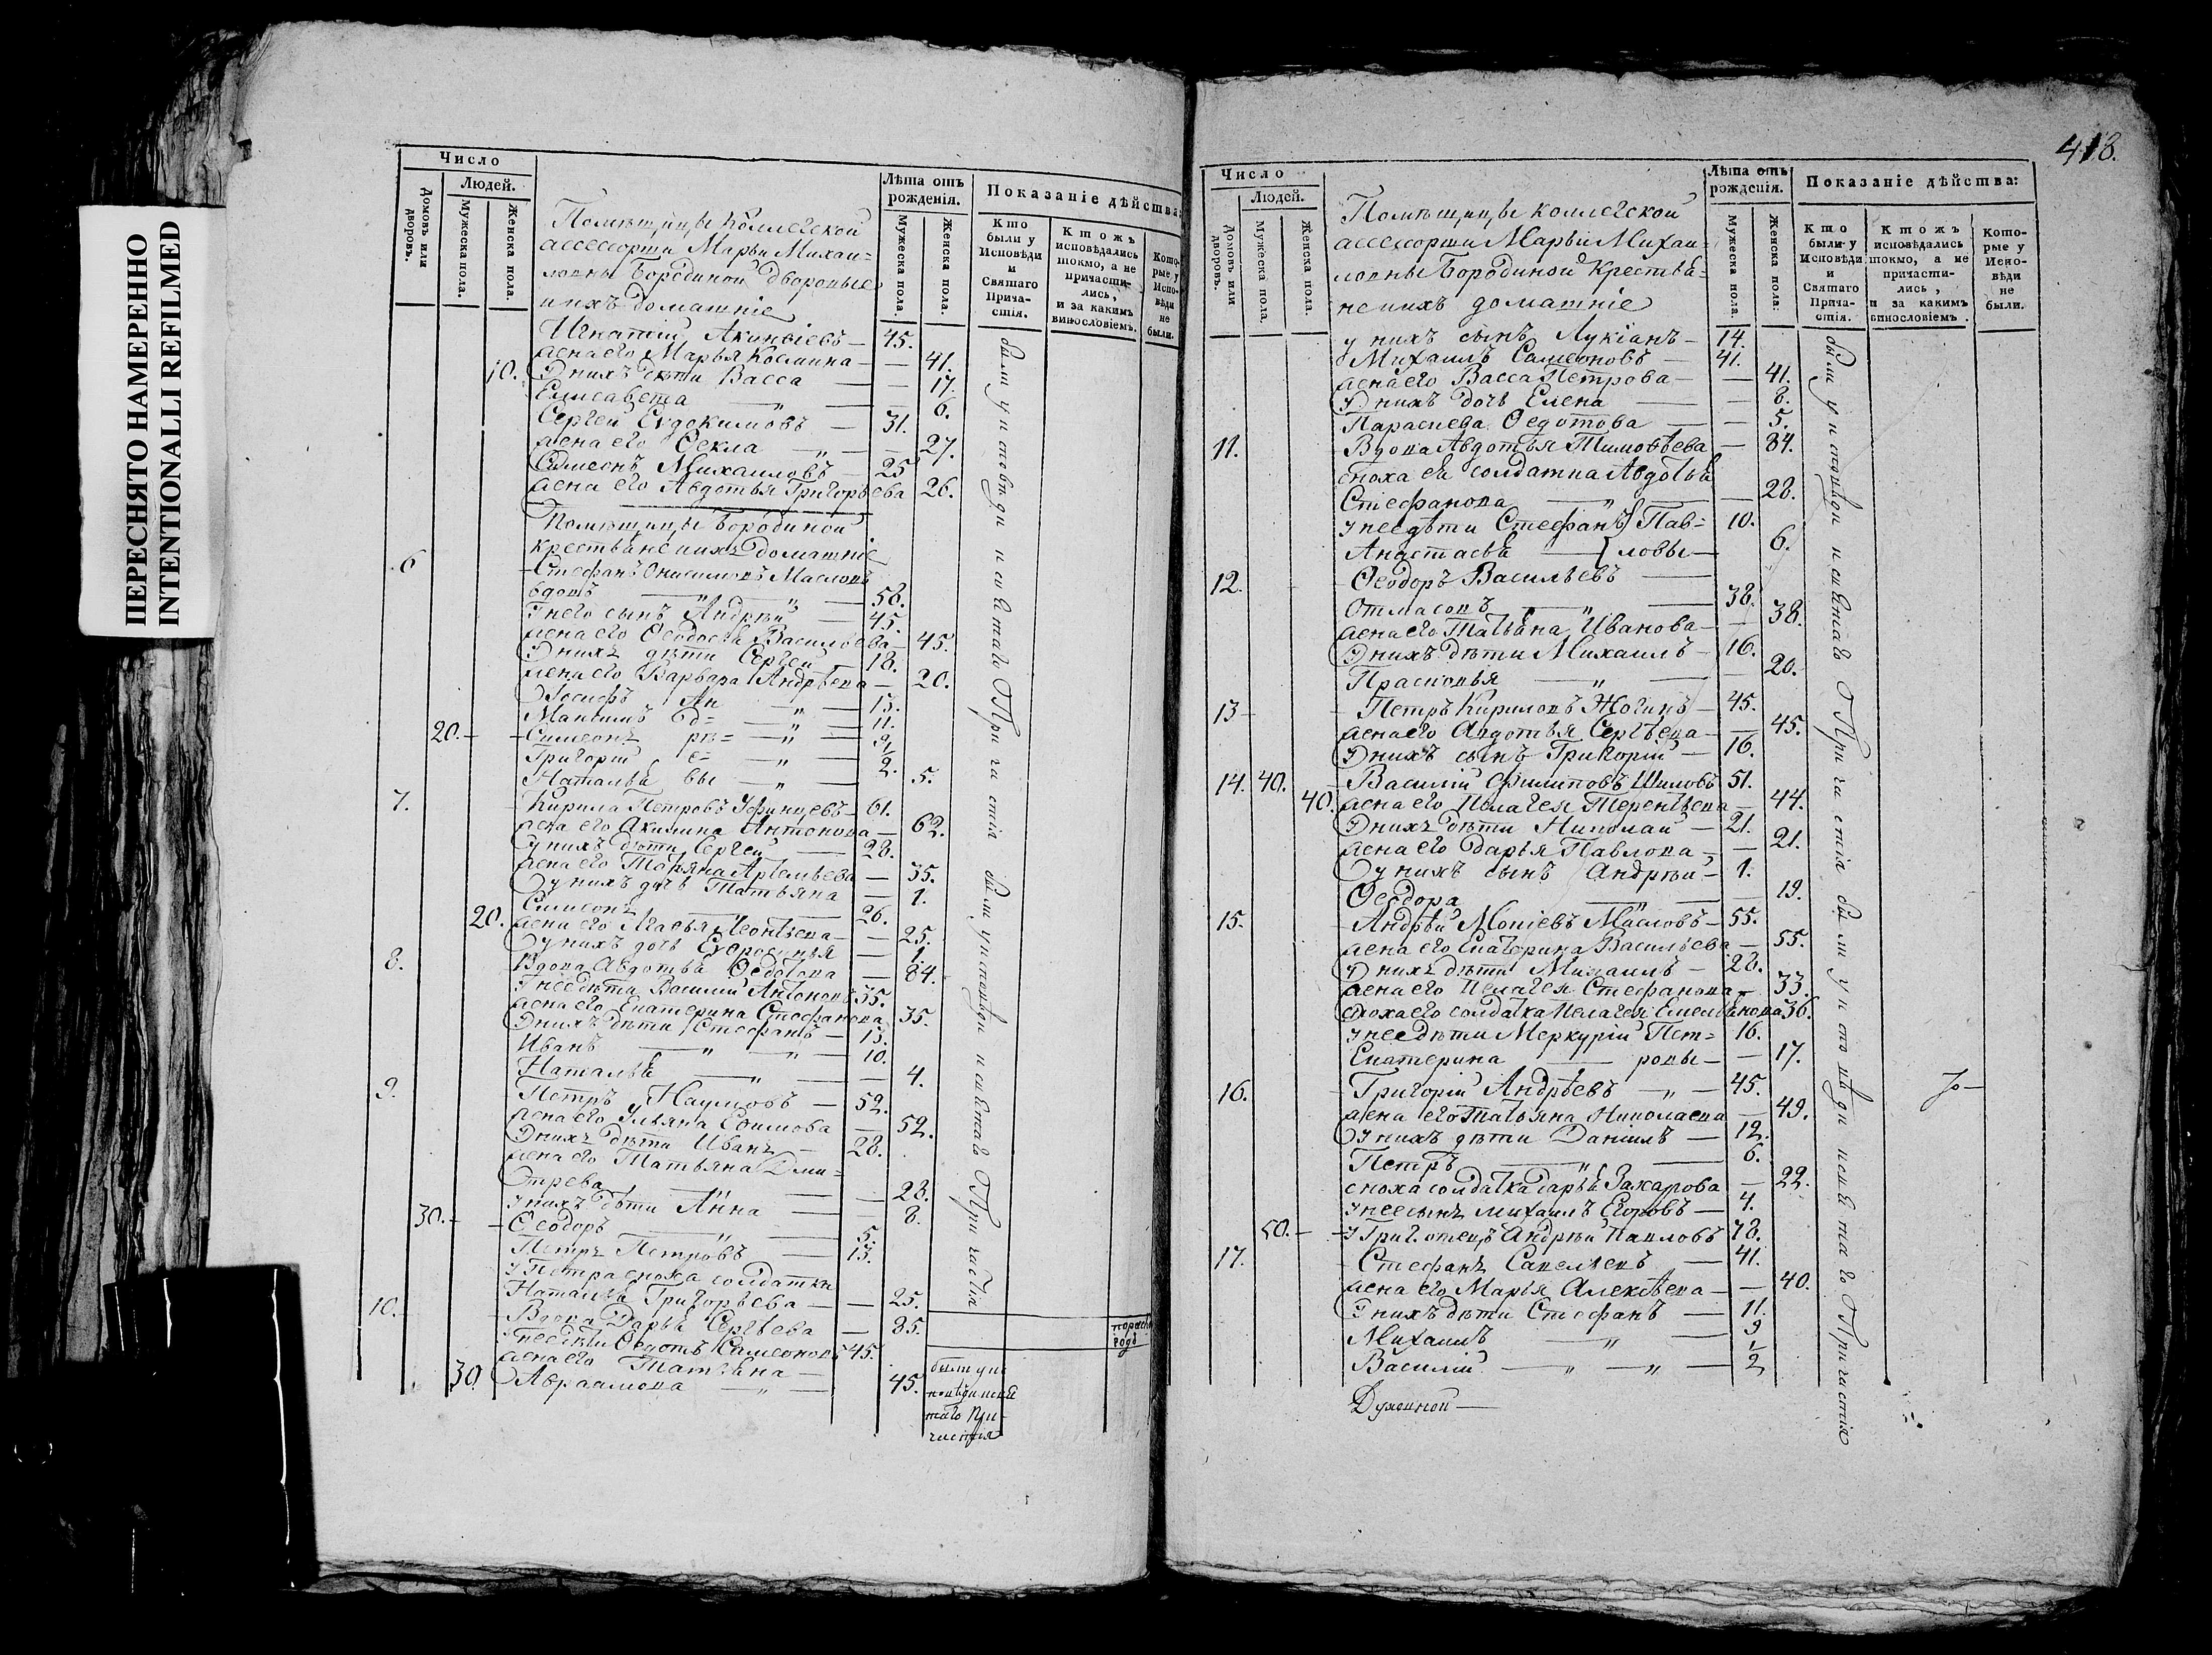 ПЕРЕСНЯТО НАМЕРЕННО
INTENTIONALLI REFILMED
Число
Людей.
Домовъ или дворовъ.
Мужеска пола.
Женска пола.
Лѣта отъ рожденія.
Мужеска пола
Женска пола.
Показаніе дѣйства:
Кто были у Исповѣди и Святаго Причастія.
Ктожъ исповѣдались токмо, а не причастились, и за какимъ винословіемъ.
Которые у Исповѣди не были.
Помѣщицы Коллегской
ассесорши Марьи Михаи=
ловны Бородиной дворовые
и ихъ домашніе
Игнатей Акинѳіевъ — 45.
жена его Марья Космина — 41.
10. У нихъ дѣти Васса — 17
Елисавета — " — 6.
Сергей Евдокимовъ — 31.
жена его Ѳекла — " — 27.
Симеонъ Михаиловъ — 25
жена его Авдотья Григорьева 26.
Помѣщицы Бородиной
крестьяне и ихъ домашніе
6 Стефанъ Онисимовъ Масловъ
вдовъ — " — " — 58.
У него сынъ Андрей — 45.
жена его Ѳеодосья Васильева — 45.
У нихъ дѣти Сергей — 18.
жена его Варвара Андрѣева — 20.
Іосифъ Ан — " — 13.
Максимъ д= — " — 11.
20. Симеонъ рѣ= — " — 9
Григорій е= — " — 1/2.
Наталья вы — " — 5.
7. Кирила Петровъ Уфинцевъ — 61.
жена его Акилина Антонова — 62.
у нихъ дѣти Сергей — 28.
жена его Марьяна Артемьева — 35.
у нихъ дочь Татьяна — 1.
Симеонъ — " — 26.
20. жена его Агафья Леонтьева — 25.
у нихъ дочь Евфросинья — 1.
8. Вдова Авдотья Ѳедотова — 84.
У нее дѣти Василий Антоновъ 35.
жена его Екатерина Стефанова 35.
У нихъ дѣти Стефанъ — 13.
Иванъ — " — " — 10.
Наталья — " — 4.
9. Петръ Наумовъ — 52.
жена его Ульяна Ефимова — 52.
У нихъ дѣти Иванъ — 28.
жена его Татьяна Дми=
трева — " — 28.
у нихъ дѣти Анна — 8.
30. Ѳеодоръ — " — 5.
Петръ Петровъ — 13.
у Петра сноха солдатка
Наталья Григорьева — 25.
10. Вдова Дарья Сергѣева — 85.
У нее дѣти Ѳедотъ Симеоновъ 45.
жена его Татьяна —
30. Авраамова — " — 45.
были у исповѣди и святаго Причастія
были у исповѣди и святаго Причастія
были у ис
повѣди и свя
таго При-
частія
418.
Число
Людей.
Домовъ или дворовъ.
Мужеска пола.
Женска пола.
Лѣта отъ рожденія.
Мужеска пола.
Женска пола:
Показаніе дѣйства:
Кто были у Исповѣди и Святаго Причастія.
Ктожъ исповѣдались токмо, а не причастились, и за какимъ винословіемъ.
Которые у Исповѣди не были.
Помѣщицы Коллегской
ассесорши Марьи Михаи=
ловны Бородиной Крестья=
не и ихъ домашніе
у нихъ сынъ Лукіанъ — 14.
Михаилъ Симеоновъ — 41.
жена его Васса Петрова — 41.
У нихъ дочь Елена — 8.
Параскева Ѳедотова — 5.
11. Вдова Авдотья Тимоѳѣева — 84.
сноха ея солдатка Авдотья
Стефанова — " — 28.
у нее дѣти Стефанъ Пав= 10.
Анастасья — ловы — 6.
12. Ѳеодоръ Васильевъ —
Отмасовъ — " — 38.
жена его Татьяна Иванова — 38.
У нихъ дѣти Михаилъ — 16.
Прасковья — " — 20.
13 — Петръ Кириловъ Жогинъ — 45.
жена его Авдотья Сергѣева — 45.
У нихъ сынъ Григорій — 16.
14. 40. Василій Филиповъ Шиловъ 51.
40. жена его Пелагея Терентьева — 44.
У нихъ дѣти Николай — 21.
жена его Дарья Павлова — 21.
у нихъ сынъ Андрей — 1.
Ѳеодора — " — 19.
15. Андрей Мокіевъ Масловъ — 55.
жена его Екатерина Васильева — 55.
У нихъ дѣти Михаилъ — 28.
жена его Пелагея Стефанова — 33.
сноха его солдатка Пелагея Емельянова 36.
у нее дѣти Меркурій Пет= 16.
Екатерина — ровы — 17.
16. Григорій Андрѣевъ — " — 45.
жена его Татьяна Николаева — 49.
у нихъ дѣти Даніилъ — 12.
Петръ — " — 6.
сноха солдатка Дарья Захарова — 22.
у нее сынъ Михаилъ Егоровъ — 4.
50. У Григ. отецъ Андрей Павловъ 78.
17. Стефанъ Савельевъ — 41.
жена его Марья Алексѣева — 40.
У нихъ дѣти Стефанъ — 11.
Михаилъ — " — 9
Василій — " — " — 1/2
Духовной —
были у исповѣди и святаго Причастія
были у исповѣди и святаго Причастія